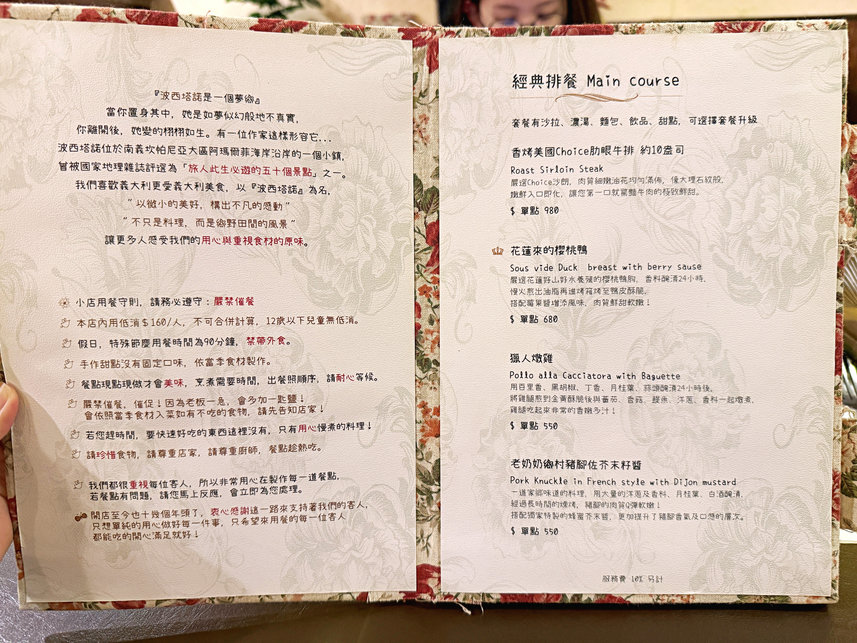 『波西塔諾是一個夢鄉』
當你置身其中，她是如夢似幻般地不真實，
你離開後，她變的栩栩如生。有一位作家這樣形容它...
波西塔諾位於南義坎帕尼亞大區阿瑪爾菲海岸沿岸的一個小鎮，
曾被國家地理雜誌評選為「旅人此生必遊的五十個景點」之一。
我們喜歡義大利更愛義大利美食，以『波西塔諾』為名，
“以微小的美好，構出不凡的感動”
“不只是料理，而是鄉野田間的風景”
讓更多人感受我們的用心與重視食材的原味。
小店用餐守則，請務必遵守：嚴禁催餐
本店內用低消＄160/人，不可合併計算，12歲以下兒童無低消。
假日，特殊節慶用餐時間為90分鐘，禁帶外食。
手作甜點沒有固定口味，依當季食材製作。
餐點現點現做才會美味，烹煮需要時間，出餐照順序，請耐心等候。
嚴禁催餐，催促！因為老板一急，會多加一匙鹽！
會依照當季食材入菜如有不吃的食物，請先告知店家！
若您趕時間，要快速好吃的東西這裡沒有，只有用心慢煮的料理！
請珍惜食物，請尊重店家，請尊重廚師，餐點趁熱吃。
我們都很重視每位客人，所以非常用心在製作每一道餐點，
若餐點有問題，請您馬上反應，會立即為您處理。
開店至今也十幾個年頭了，衷心感謝這一路來支持著我們的客人，
只想單純的用心做好每一件事，只希望來用餐的每一位客人
都能吃的開心滿足就好！
經典排餐 Main course
套餐有沙拉、濃湯、麵包、飲品、甜點，可選擇套餐升級
香烤美國Choice肋眼牛排 約10盎司
Roast Sirloin Steak
嚴選Choice沙朗，肉質細嫩油花均勻滿佈，像大理石紋般，
嫩鮮入口即化，讓您第一口就驚豔牛肉的極致鮮甜。
$ 單點 980
花蓮來的櫻桃鴨
Sous vide Duck breast with berry sause
嚴選花蓮好山好水養殖的櫻桃鴨胸，香料醃漬24小時，
慢火煎出油脂再進烤箱烤至鴨皮酥脆，
搭配莓果醬增添風味，肉質鮮甜軟嫩！
$ 單點 680
獵人燉雞
Pollo alla Cacciatora with Baguette
用百里香、黑胡椒、丁香、月桂葉、蒜頭醃漬24小時後，
將雞腿煎到金黃酥脆後與番茄、香菇、鯷魚、洋蔥、香料一起燉煮，
雞腿吃起來非常的香嫩多汁！
$ 單點 550
老奶奶鄉村豬腳佐芥末籽醬
Pork Knuckle in French style with Dijon mustard
一道家鄉味道的料理，用大量的洋蔥及香料、月桂葉、白酒醃漬，
經過長時間的燉烤，豬腳的肉質Q彈軟嫩！
搭配獨家特製的蜂蜜芥末醬，更加提升了豬腳香氣及口感的層次。
$ 單點 550
服務費 10% 另計